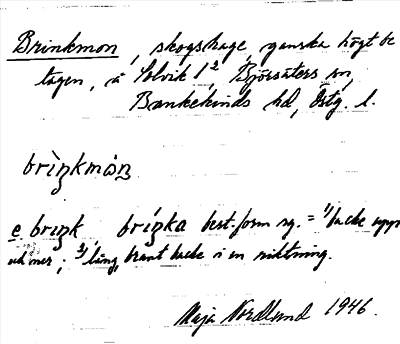 Brinkmon, skogshage, ganska högt be
lägen, å Solvik 1², Björsäters sn,
Bankekinds hd, Östg. l.
brìŋkmòn
e briŋk bríŋka best. form sg. = ¹⁾backe upp
och ner; ²⁾lång, brant backe i en riktning.
Maja Nordlund 1946.